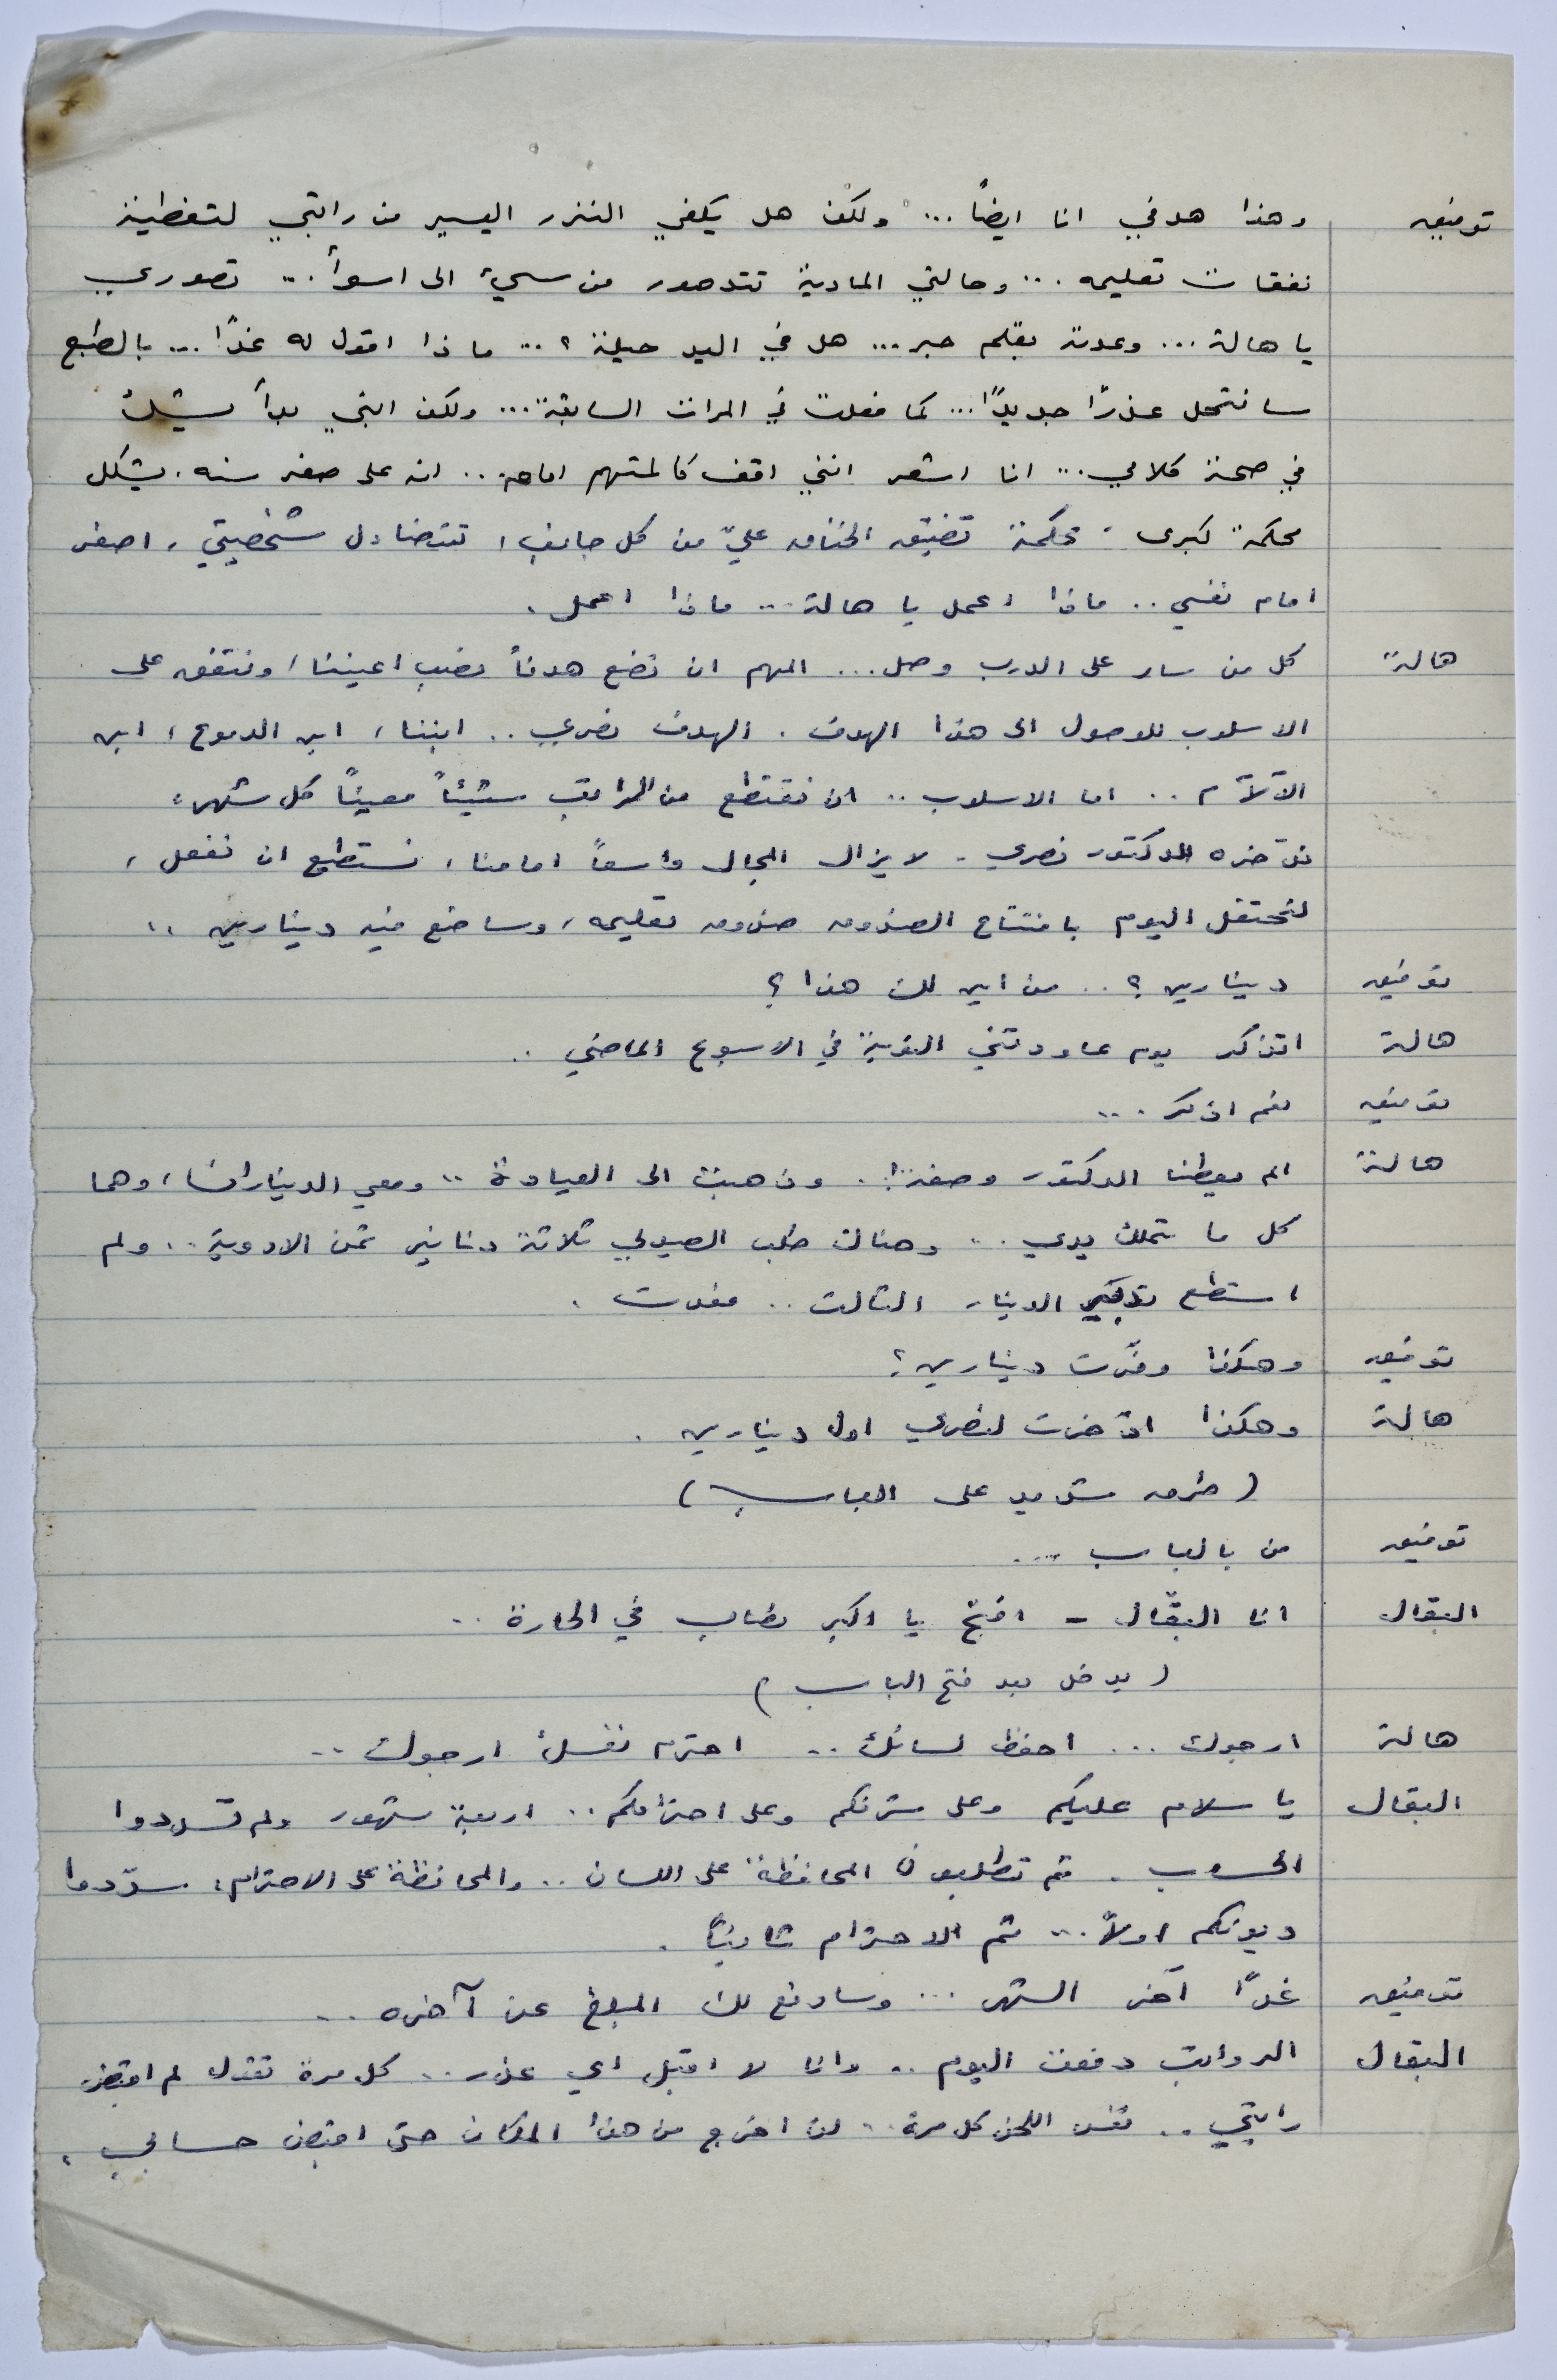 توفيق وهذا هدفي انا ايضاً... ولكن هل يكفي النزر اليسير من راتبي لتغطية
نفقات تعليمه... وحالتي المادية تتدهور من سيء الى اسوأ... تصوري
يا هالة... وعدته بقلم حبر... هل في اليد حيلة؟... ماذا اقول له غدًا... بالطبع
سانتحل عذرًا جديدًا... كما فعلت في المرات السابقة... ولكن ابني بدأ يشك
في صحة كلامي... انا اشعر انني اقف كالمتهم امامه... انه على صغر سنه. يشكل
محكمة كبرى. محكمة تضيق الخناق عليّ من كل جانب، تتضاءل شخصيتي، اصغر
امام نفسي.. ماذا اعمل يا هالة... ماذا اعمل.
هالة كل من سار على الدرب وصل... المهم ان نضع هدفاً نصب اعيننا، ونتفق على
الاسلوب للوصول الى هذا الهدف. الهدف نصري.. ابننا، ابن الدموع، ابن
الآلآم.. اما الاسلوب.. ان نقتطع من الراتب شيئاً معينًا كل شهر،
ندّخره للدكتور نصري. لا يزال المجال واسعاً امامنا، نستطيع ان نفعل،
لنحتفل اليوم بافتتاح الصندوق صندوق تعليمه، وساضع فيه دينارين..
توفيق دينارين؟.. من اين لك هذا؟
هالة اتذكر يوم عاودتني النوبة في الاسبوع الماضي..
توفيق نعم اذكر...
هالة الم يعطنا الدكتور وصفة!. وذهبت الى العيادة.. ومعي الديناران، وهما
كل ما تملك يدي.. وهناك طلب الصيدلي ثلاثة دنانير ثمن الادوية.. ولم
استطع تدبير الدينار الثالث.. فعدت.
توفيق وهكذا وفّرت دينارين؟
هالة وهكذا ادّخرت لنصري اول دينارين.
(طرق شديد على الباب)
توفيق من بالباب...
البقال انا البقّال - افتح يا اكبر نصاب في الحارة..
(يدخل بعد فتح الباب)
هالة ارجوك... احفظ لسانك.. احترم نفسك ارجوك..
البقال يا سلام عليكم وعلى شرفكم وعلى احترامكم.. اربعة شهور ولم تسددوا
الحساب. ثم تطلبون المحافظة على اللسان.. والمحافظة على الاحترام، سدّدوا
ديونكم اولاً... ثم الاحترام ثانيًا.
توفيق غدًا آخر الشهر... وسادفع لك المبلغ عن آخره..
البقال الرواتب دفعت اليوم.. وانا لا اقبل اي عذر.. كل مرة تقول لم اقبض
راتبي.. نفس اللحن كل مرة.. لن اخرج من هذا المكان حتى اقبض حسابي.